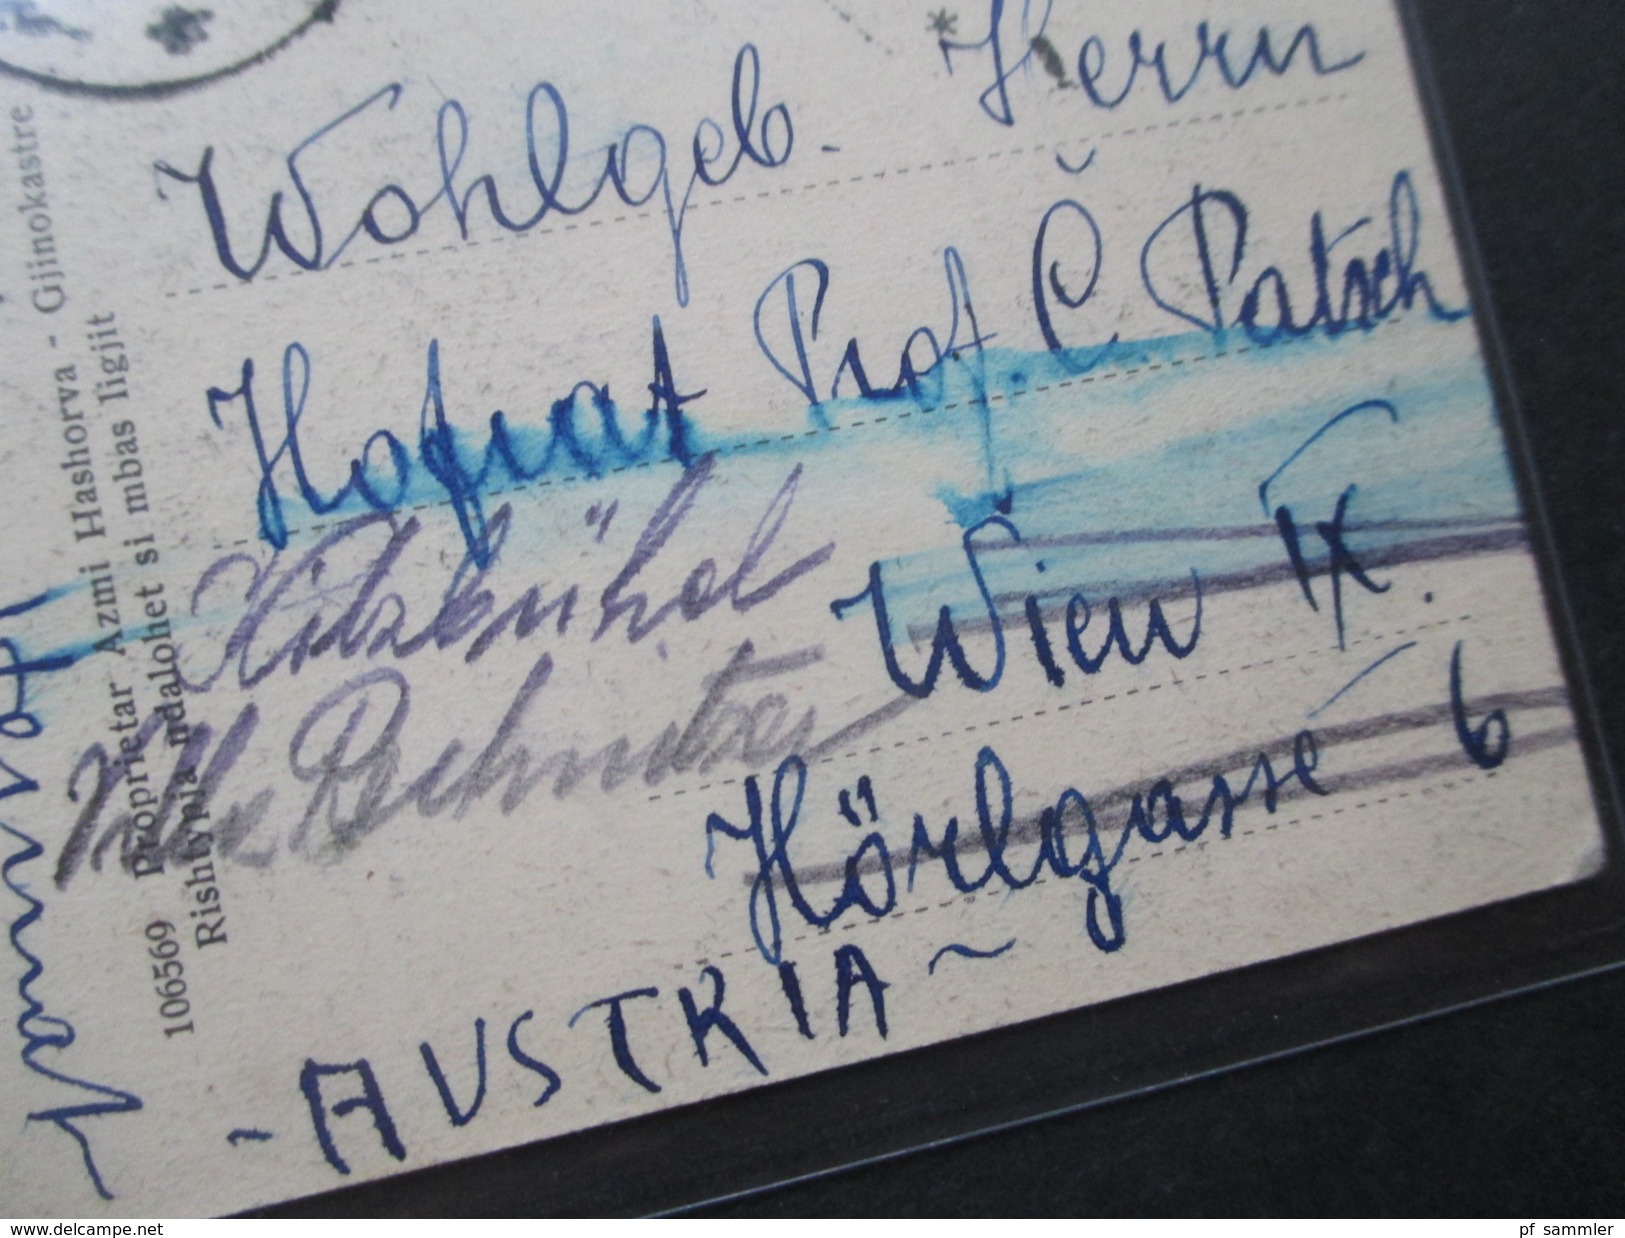 Wohlgeb. Herrn
Hofrat Prof. Č. Patsch
Wien IX.
Hörlgasse 6
- AUSTRIA ~
Kitzbühel
Villa Rechnitzer
106569 Proprietar Azmi Hashorva - Gjinokastre
Rishtypja ndalohet si mbas ligjit
www.delcampe.net
pf_sammler